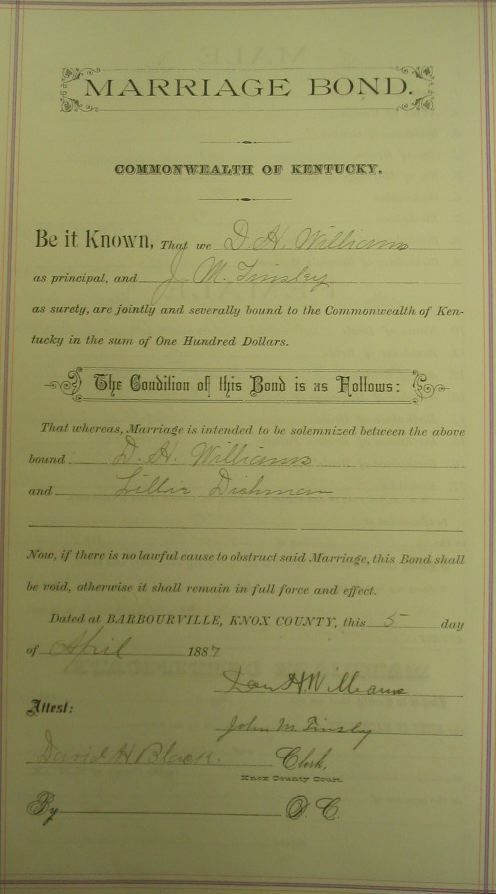 MARRIAGE BOND.
COMMONWEALTH OF KENTUCKY.
Be it Known, That we D. H. Williams
as principal, and J. M. Tinsley
as surety, are jointly and severally bound to the Commonwealth of Ken-
tucky in the sum of One Hundred Dollars.
The Condition of this Bond is as Follows:
That whereas, Marriage is intended to be solemnized between the above
bound D. H. Williams
and Lillie Dishman
Now, if there is no lawful cause to obstruct said Marriage, this Bond shall
be void, otherwise it shall remain in full force and effect.
Dated at BARBOURVILLE, KNOX COUNTY, this 5 day
of April 1887
Dan H Williams
Attest:
John M Tinsly
David H Black. Clerk,
Knox County Court.
By D. C.